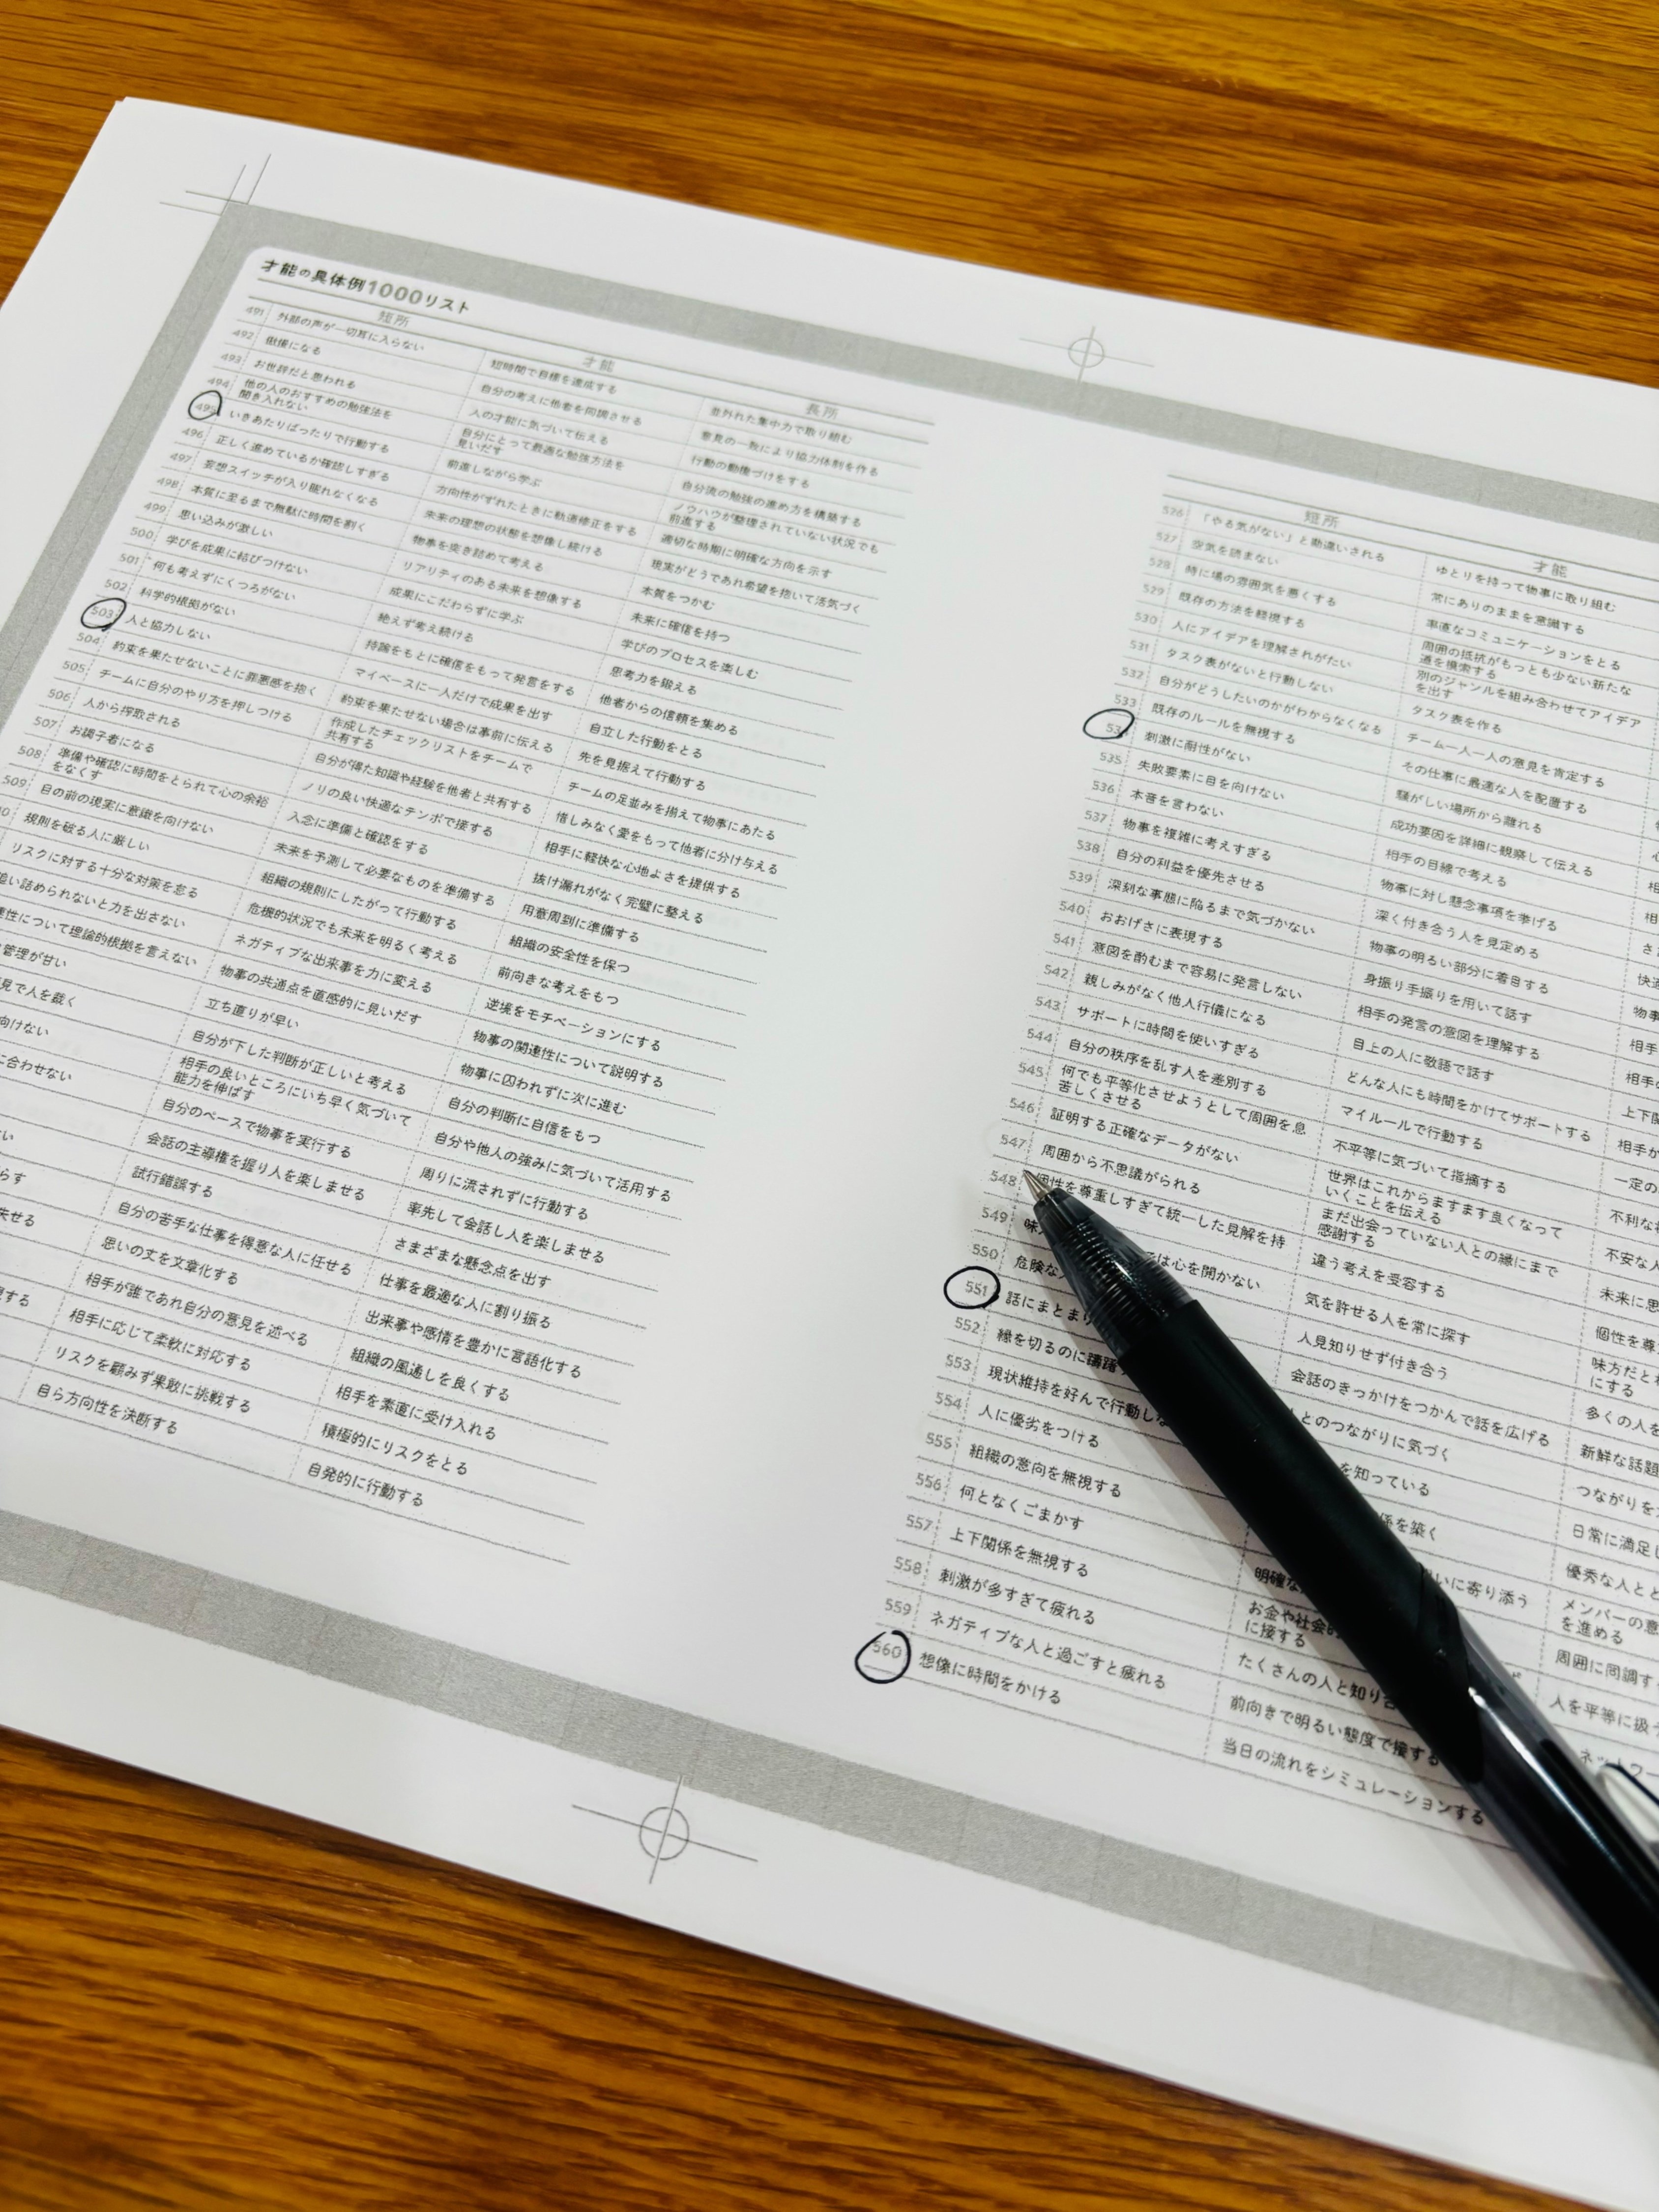 才能の具体例1000リスト
短所 才能 長所
491 外部の声が一切耳に入らない 短時間で目標を達成する 並外れた集中力で取り組む
492 傲慢になる 自分の考えに他者を同調させる 意見の一致により協力体制を作る
493 お世辞だと思われる 人の才能に気づいて伝える 行動の動機づけをする
494 他の人のおすすめの勉強法を 自分にとって最適な勉強方法を 自分流の勉強の進め方を構築する
聞き入れない 見いだす
495 いきあたりばったりで行動する 前進しながら学ぶ ノウハウが整理されていない状況でも
前進する
496 正しく進めているか確認しすぎる 方向性がずれたときに軌道修正をする 適切な時期に明確な方向を示す
497 妄想スイッチが入り眠れなくなる 未来の理想の状態を想像し続ける 現実がどうであれ希望を抱いて活気づく
498 本質に至るまで無駄に時間を割く 物事を突き詰めて考える 本質をつかむ
499 思い込みが激しい リアリティのある未来を想像する 未来に確信を持つ
500 学びを成果に結びつけない 成果にこだわらずに学ぶ 学びのプロセスを楽しむ
501 何も考えずにくつろがない 絶えず考え続ける 思考力を鍛える
502 科学的根拠がない 持論をもとに確信をもって発言をする 他者からの信頼を集める
503 人と協力しない マイペースに一人だけで成果を出す 自立した行動をとる
504 約束を果たせないことに罪悪感を抱く 約束を果たせない場合は事前に伝える 先を見据えて行動する
505 チームに自分のやり方を押しつける 作成したチェックリストをチームで チームの足並みを揃えて物事にあたる
共有する
506 人から搾取される 自分が得た知識や経験を他者と共有する 惜しみなく愛をもって他者に分け与える
507 お調子者になる ノリの良い快適なテンポで接する 相手に軽快な心地よさを提供する
508 準備や確認に時間をとられて心の余裕 入念に準備と確認をする 抜け漏れがなく完璧に整える
をなくす
509 目の前の現実に意識を向けない 未来を予測して必要なものを準備する 用意周到に準備する
規則を破る人に厳しい 組織の規則にしたがって行動する 組織の安全性を保つ
リスクに対する十分な対策を怠る 危機的状況でも未来を明るく考える 前向きな考えをもつ
い詰められないと力を出さない ネガティブな出来事を力に変える 逆境をモチベーションにする
性について理論的根拠を言えない 物事の共通点を直感的に見いだす 物事の関連性について説明する
管理が甘い 立ち直りが早い 物事に囚われずに次に進む
見で人を裁く 自分が下した判断が正しいと考える 自分の判断に自信をもつ
向けない 相手の良いところにいち早く気づいて 自分や他人の強みに気づいて活用する
能力を伸ばす
に合わせない 自分のペースで物事を実行する 周りに流されずに行動する
会話の主導権を握り人を楽しませる 率先して会話し人を楽しませる
い 試行錯誤する さまざまな懸念点を出す
らす 自分の苦手な仕事を得意な人に任せる 仕事を最適な人に割り振る
せる 思いの丈を文章化する 出来事や感情を豊かに言語化する
相手が誰であれ自分の意見を述べる 組織の風通しを良くする
する 相手に応じて柔軟に対応する 相手を素直に受け入れる
リスクを顧みず果敢に挑戦する 積極的にリスクをとる
自ら方向性を決断する 自発的に行動する
短所 才能
526 「やる気がない」と勘違いされる ゆとりを持って物事に取り組む
527 空気を読まない 常にありのままを意識する
528 時に場の雰囲気を悪くする 率直なコミュニケーションをとる
529 既存の方法を軽視する 周囲の抵抗がもっとも少ない新たな
道を模索する
530 人にアイデアを理解されがたい 別のジャンルを組み合わせてアイデア
を出す
531 タスク表がないと行動しない タスク表を作る
532 自分がどうしたいのかがわからなくなる チーム一人一人の意見を肯定する
533 既存のルールを無視する その仕事に最適な人を配置する
刺激に耐性がない 騒がしい場所から離れる
535 失敗要素に目を向けない 成功要因を詳細に観察して伝える
536 本音を言わない 相手の目線で考える
537 物事を複雑に考えすぎる 物事に対し懸念事項を挙げる
538 自分の利益を優先させる 深く付き合う人を見定める
539 深刻な事態に陥るまで気づかない 物事の明るい部分に着目する 快
540 おおげさに表現する 身振り手振りを用いて話す 物事
541 意図を酌むまで容易に発言しない 相手の発言の意図を理解する 相手
542 親しみがなく他人行儀になる 目上の人に敬語で話す 相手の
543 サポートに時間を使いすぎる どんな人にも時間をかけてサポートする 上下関
544 自分の秩序を乱す人を差別する マイルールで行動する 相手か
545 何でも平等化させようとして周囲を息 不平等に気づいて指摘する 一定の
苦しくさせる
546 証明する正確なデータがない 世界はこれからますます良くなって 不利な
いくことを伝える
547 周囲から不思議がられる まだ出会っていない人との縁にまで 不安な人
感謝する
548 個性を尊重しすぎて統一した見解を持 違う考えを受容する 未来に思
549 味 は心を開かない 気を許せる人を常に探す 個性を尊
550 危険な 人見知りせず付き合う 味方だと
にする
551 話にまとまり 会話のきっかけをつかんで話を広げる 多くの人を
552 縁を切るのに躊躇 とのつながりに気づく 新鮮な話題
553 現状維持を好んで行動し を知っている つながりを
554 人に優劣をつける 係を築く 日常に満足し
555 組織の意向を無視する いに寄り添う 優秀な人と
556 何となくごまかす 明確な メンバーの意
を進める
557 上下関係を無視する お金や社会的 周囲に同調す
に接する
558 刺激が多すぎて疲れる たくさんの人と知り合 人を平等に扱
559 ネガティブな人と過ごすと疲れる 前向きで明るい態度で接する ネットワー
560 想像に時間をかける 当日の流れをシミュレーションする